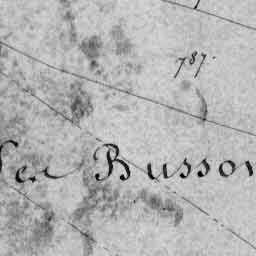 787.
Les Busson